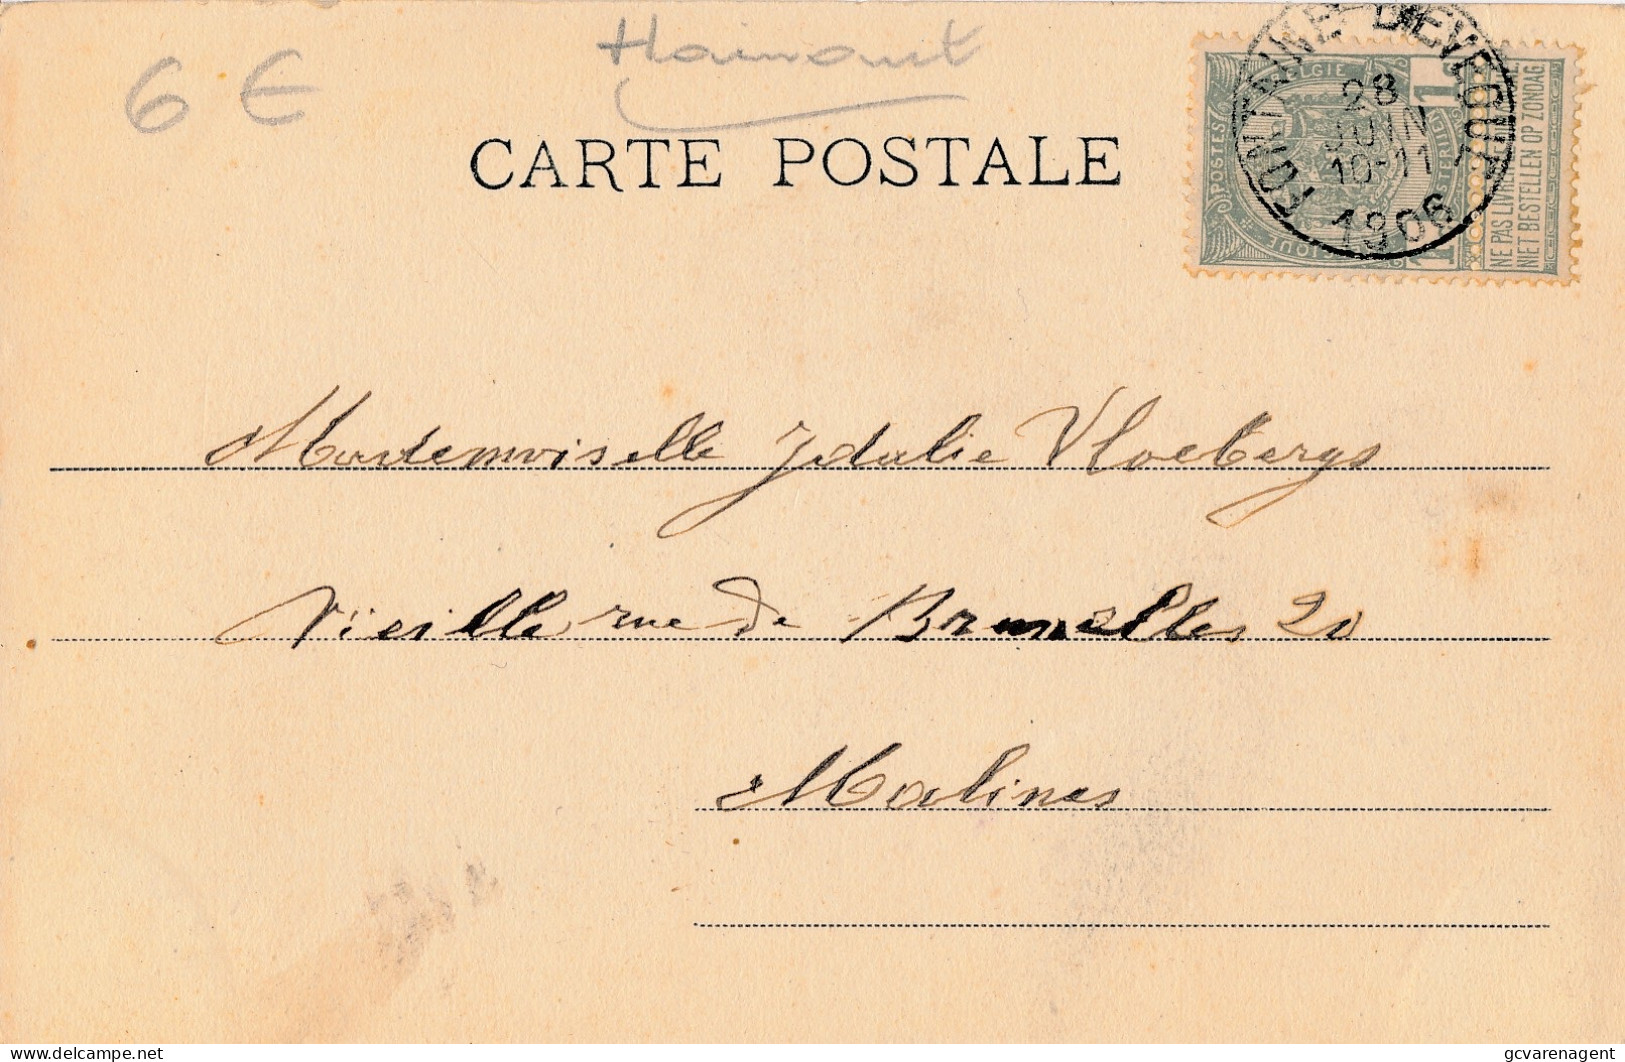 6 €
Hainaut
CARTE POSTALE
FONTAINE-L'EVEQUE
28
JUIN
10-11
1906
POSTES
BELGIE
1
NE PAS LIVRER LE DIMANCHE
NIET BESTELLEN OP ZONDAG
Mademoiselle Idalie Vloebergs
Vieille rue de Bruxelles 20
Malines
© delcampe.net
gcvarenagent